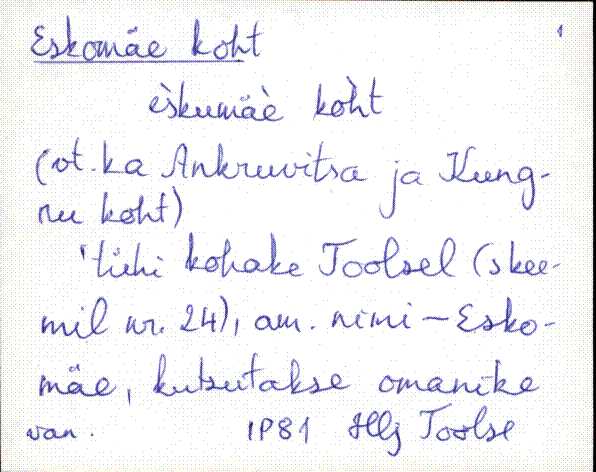 Eskomäe koht 1
èskumäè kòht
(vt. ka Ankruvitsa ja Kung-
ru koht)
'tühi kohake Toolsel (skee-
mil nr. 24), am. nimi – Esko-
mäe, kutsutakse omanike
van. IP81 Hlj Toolse